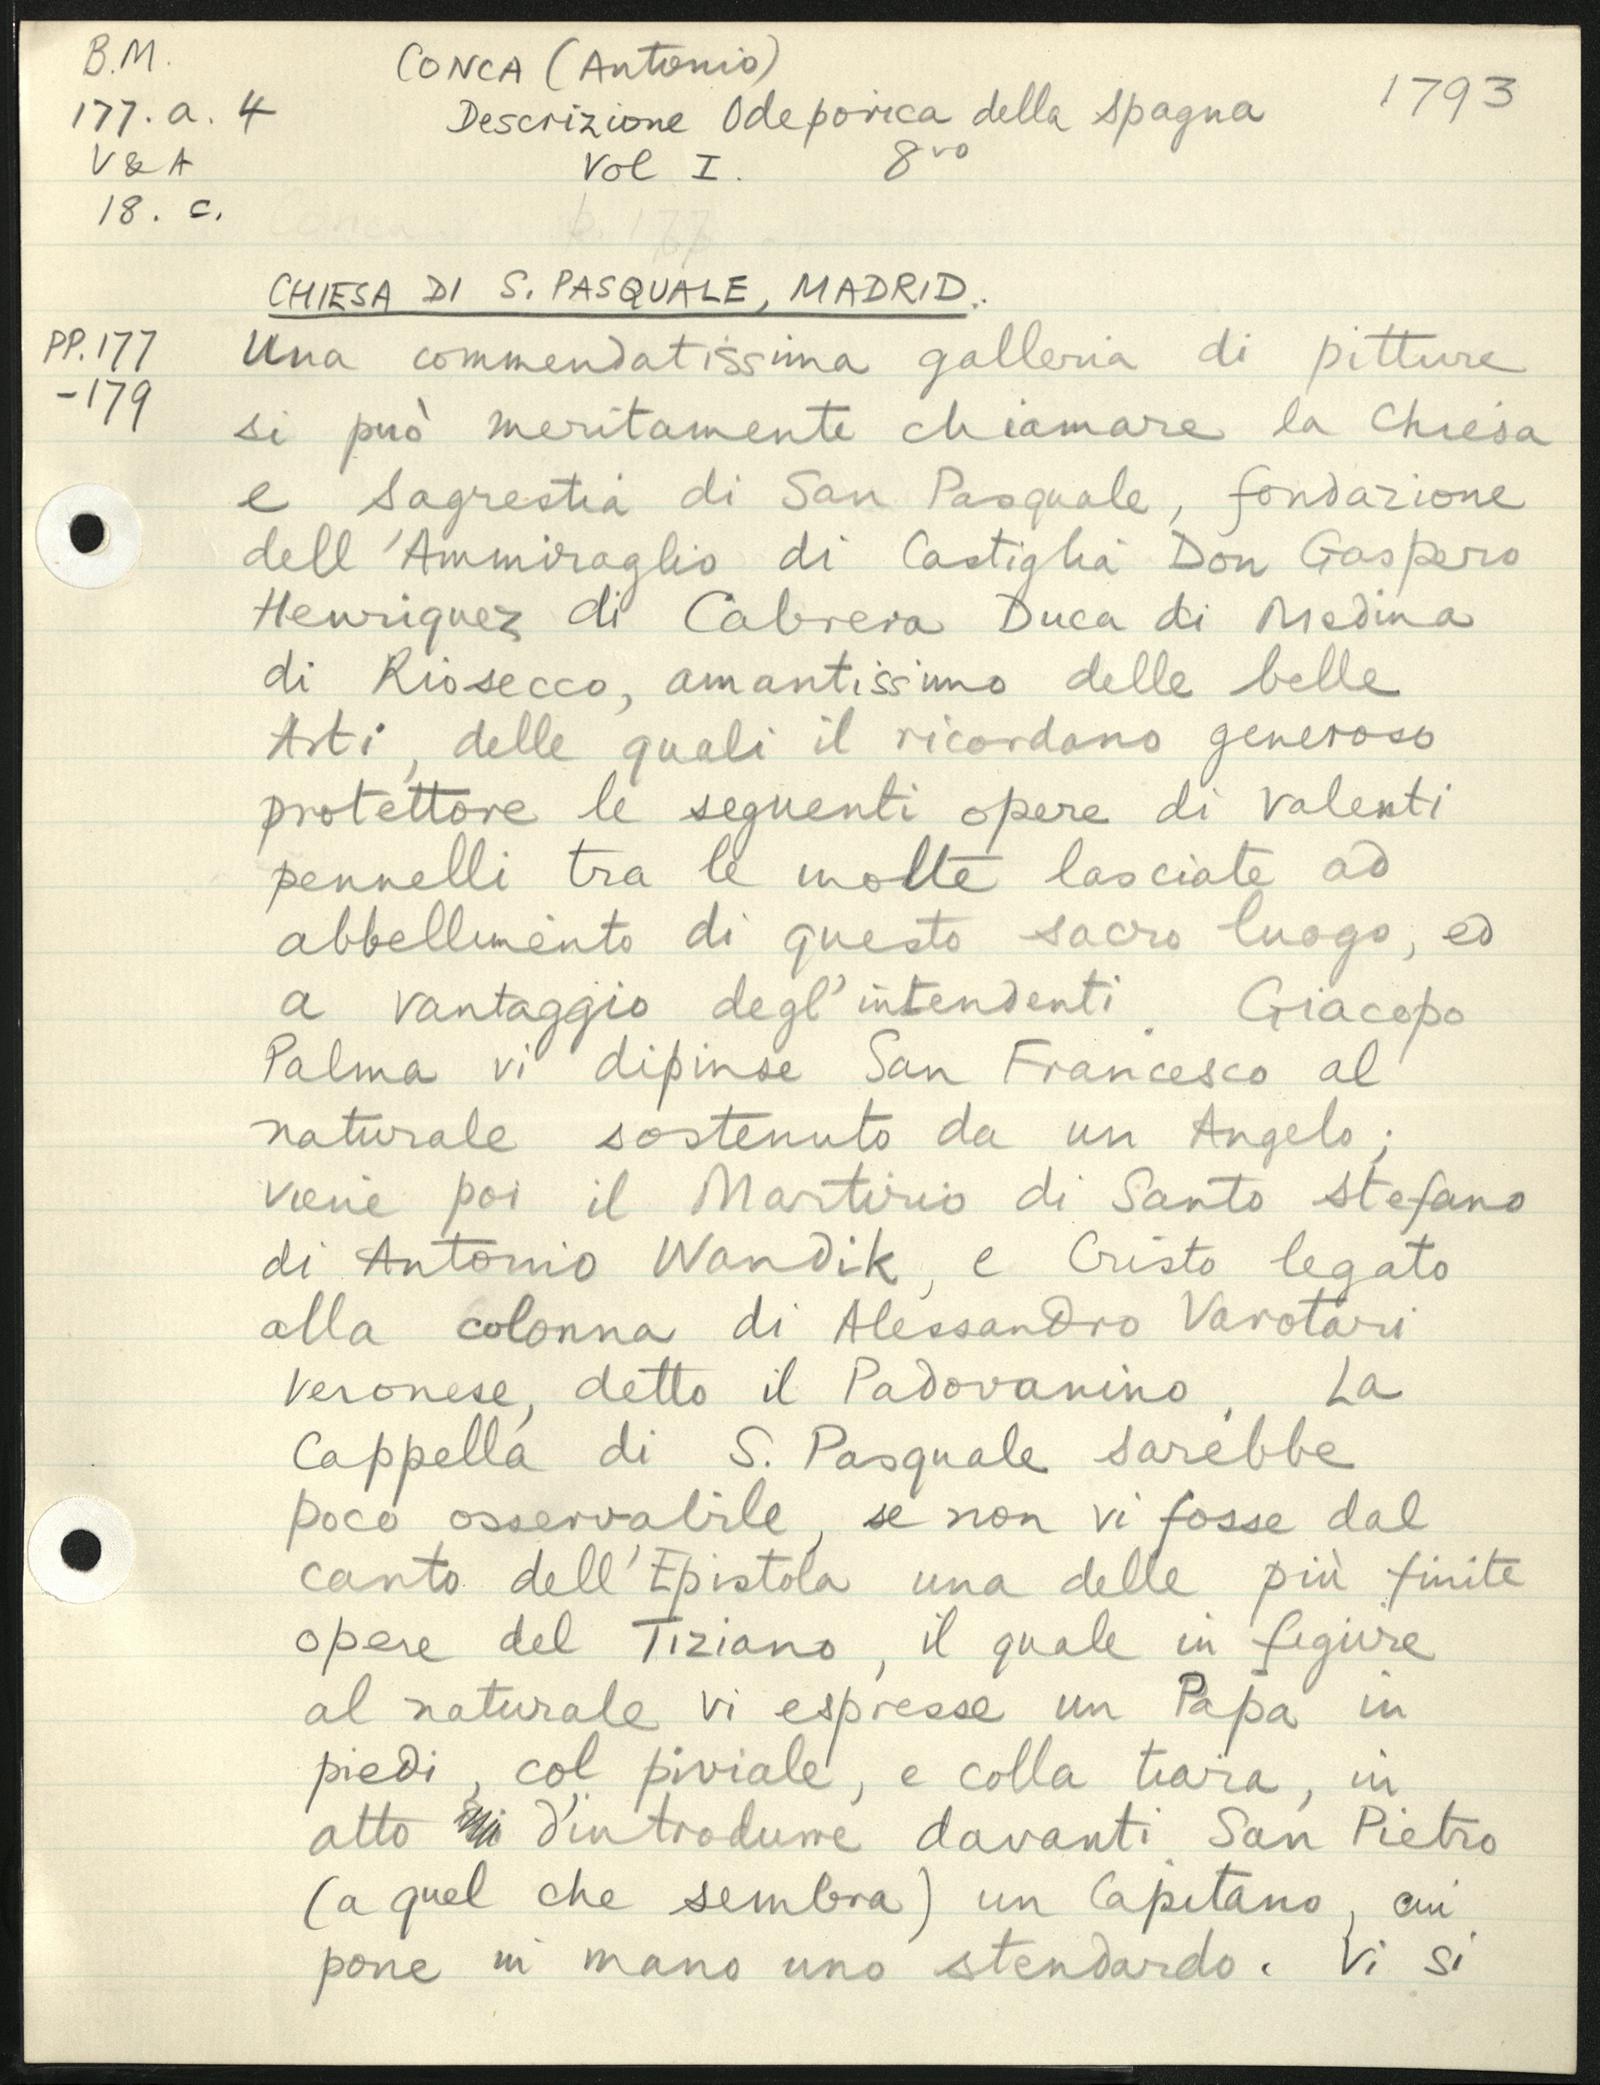 B.M.
177. a. 4
V & A
18. c.
CONCA (Antonio)
Descrizione Odeporica della Spagna
Vol I. 8vo
1793
CHIESA DI S. PASQUALE, MADRID.
PP. 177
-179
Una commendatissima galleria di pitture
si può meritamente chiamare la Chiesa
e Sagrestia di San Pasquale, fondazione
dell'Ammiraglio di Castiglia Don Gaspero
Henriquez di Cabrera Duca di Medina
di Riosecco, amantissimo delle belle
Arti, delle quali il ricordano generoso
protettore le seguenti opere di valenti
pennelli tra le molte lasciate ad
abbellimento di questo sacro luogo, ed
a vantaggio degl'intendenti. Giacopo
Palma vi dipinse San Francesco al
naturale sostenuto da un Angelo;
viene poi il Martirio di Santo Stefano
di Antonio Wandik, e Cristo legato
alla colonna di Alessandro Varotari
Veronese, detto il Padovanino. La
Cappella di S. Pasquale sarebbe
poco osservabile, se non vi fosse dal
canto dell'Epistola una delle più finite
opere del Tiziano, il quale in figure
al naturale vi espresse un Papa in
piedi, col piviale, e colla tiara, in
atto d'introdurre davanti San Pietro
(a quel che sembra) un Capitano, cui
pone in mano uno stendardo. Vi si